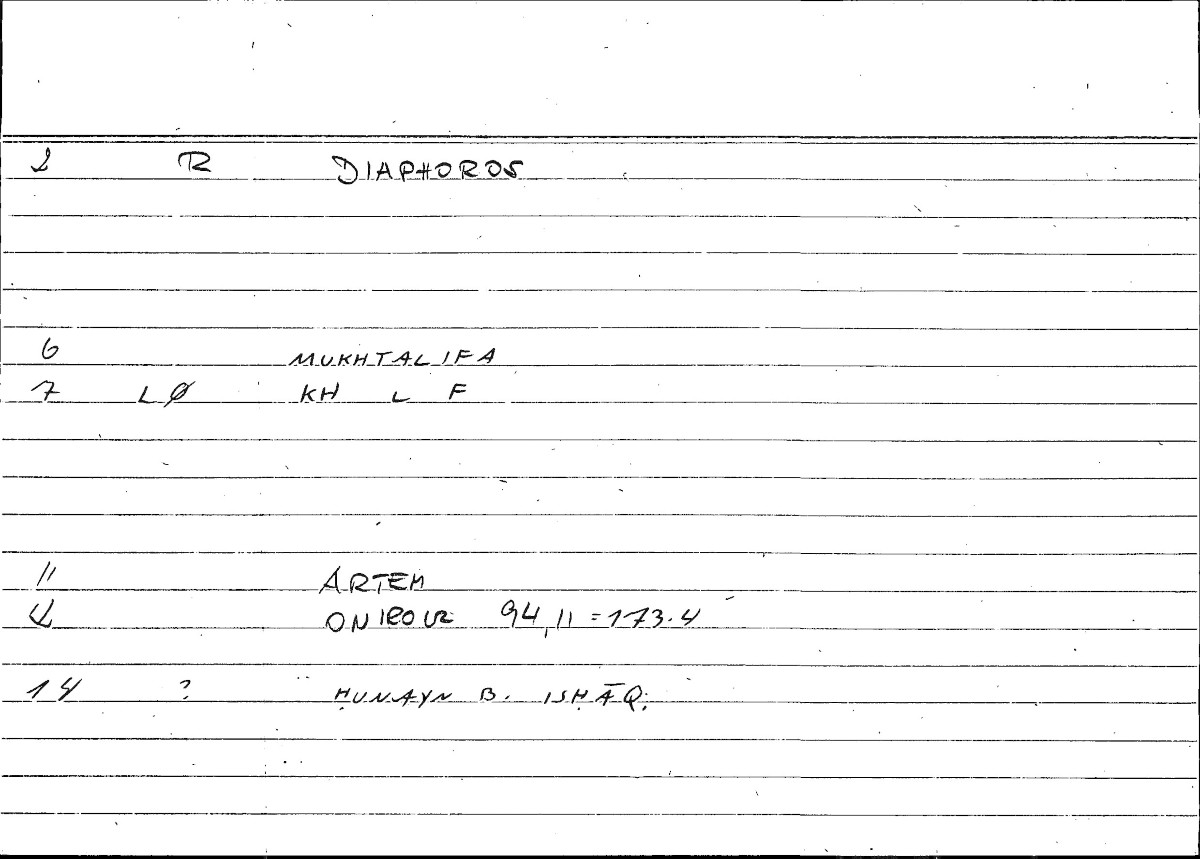 2 R DIAPHOROS
6 MUKHTALIFA
7 LØ KH L F
11 ARTEM
12 ONIROCR 94,11 = 173.4
14 ? ḤUNAYN B. ISḤĀQ.